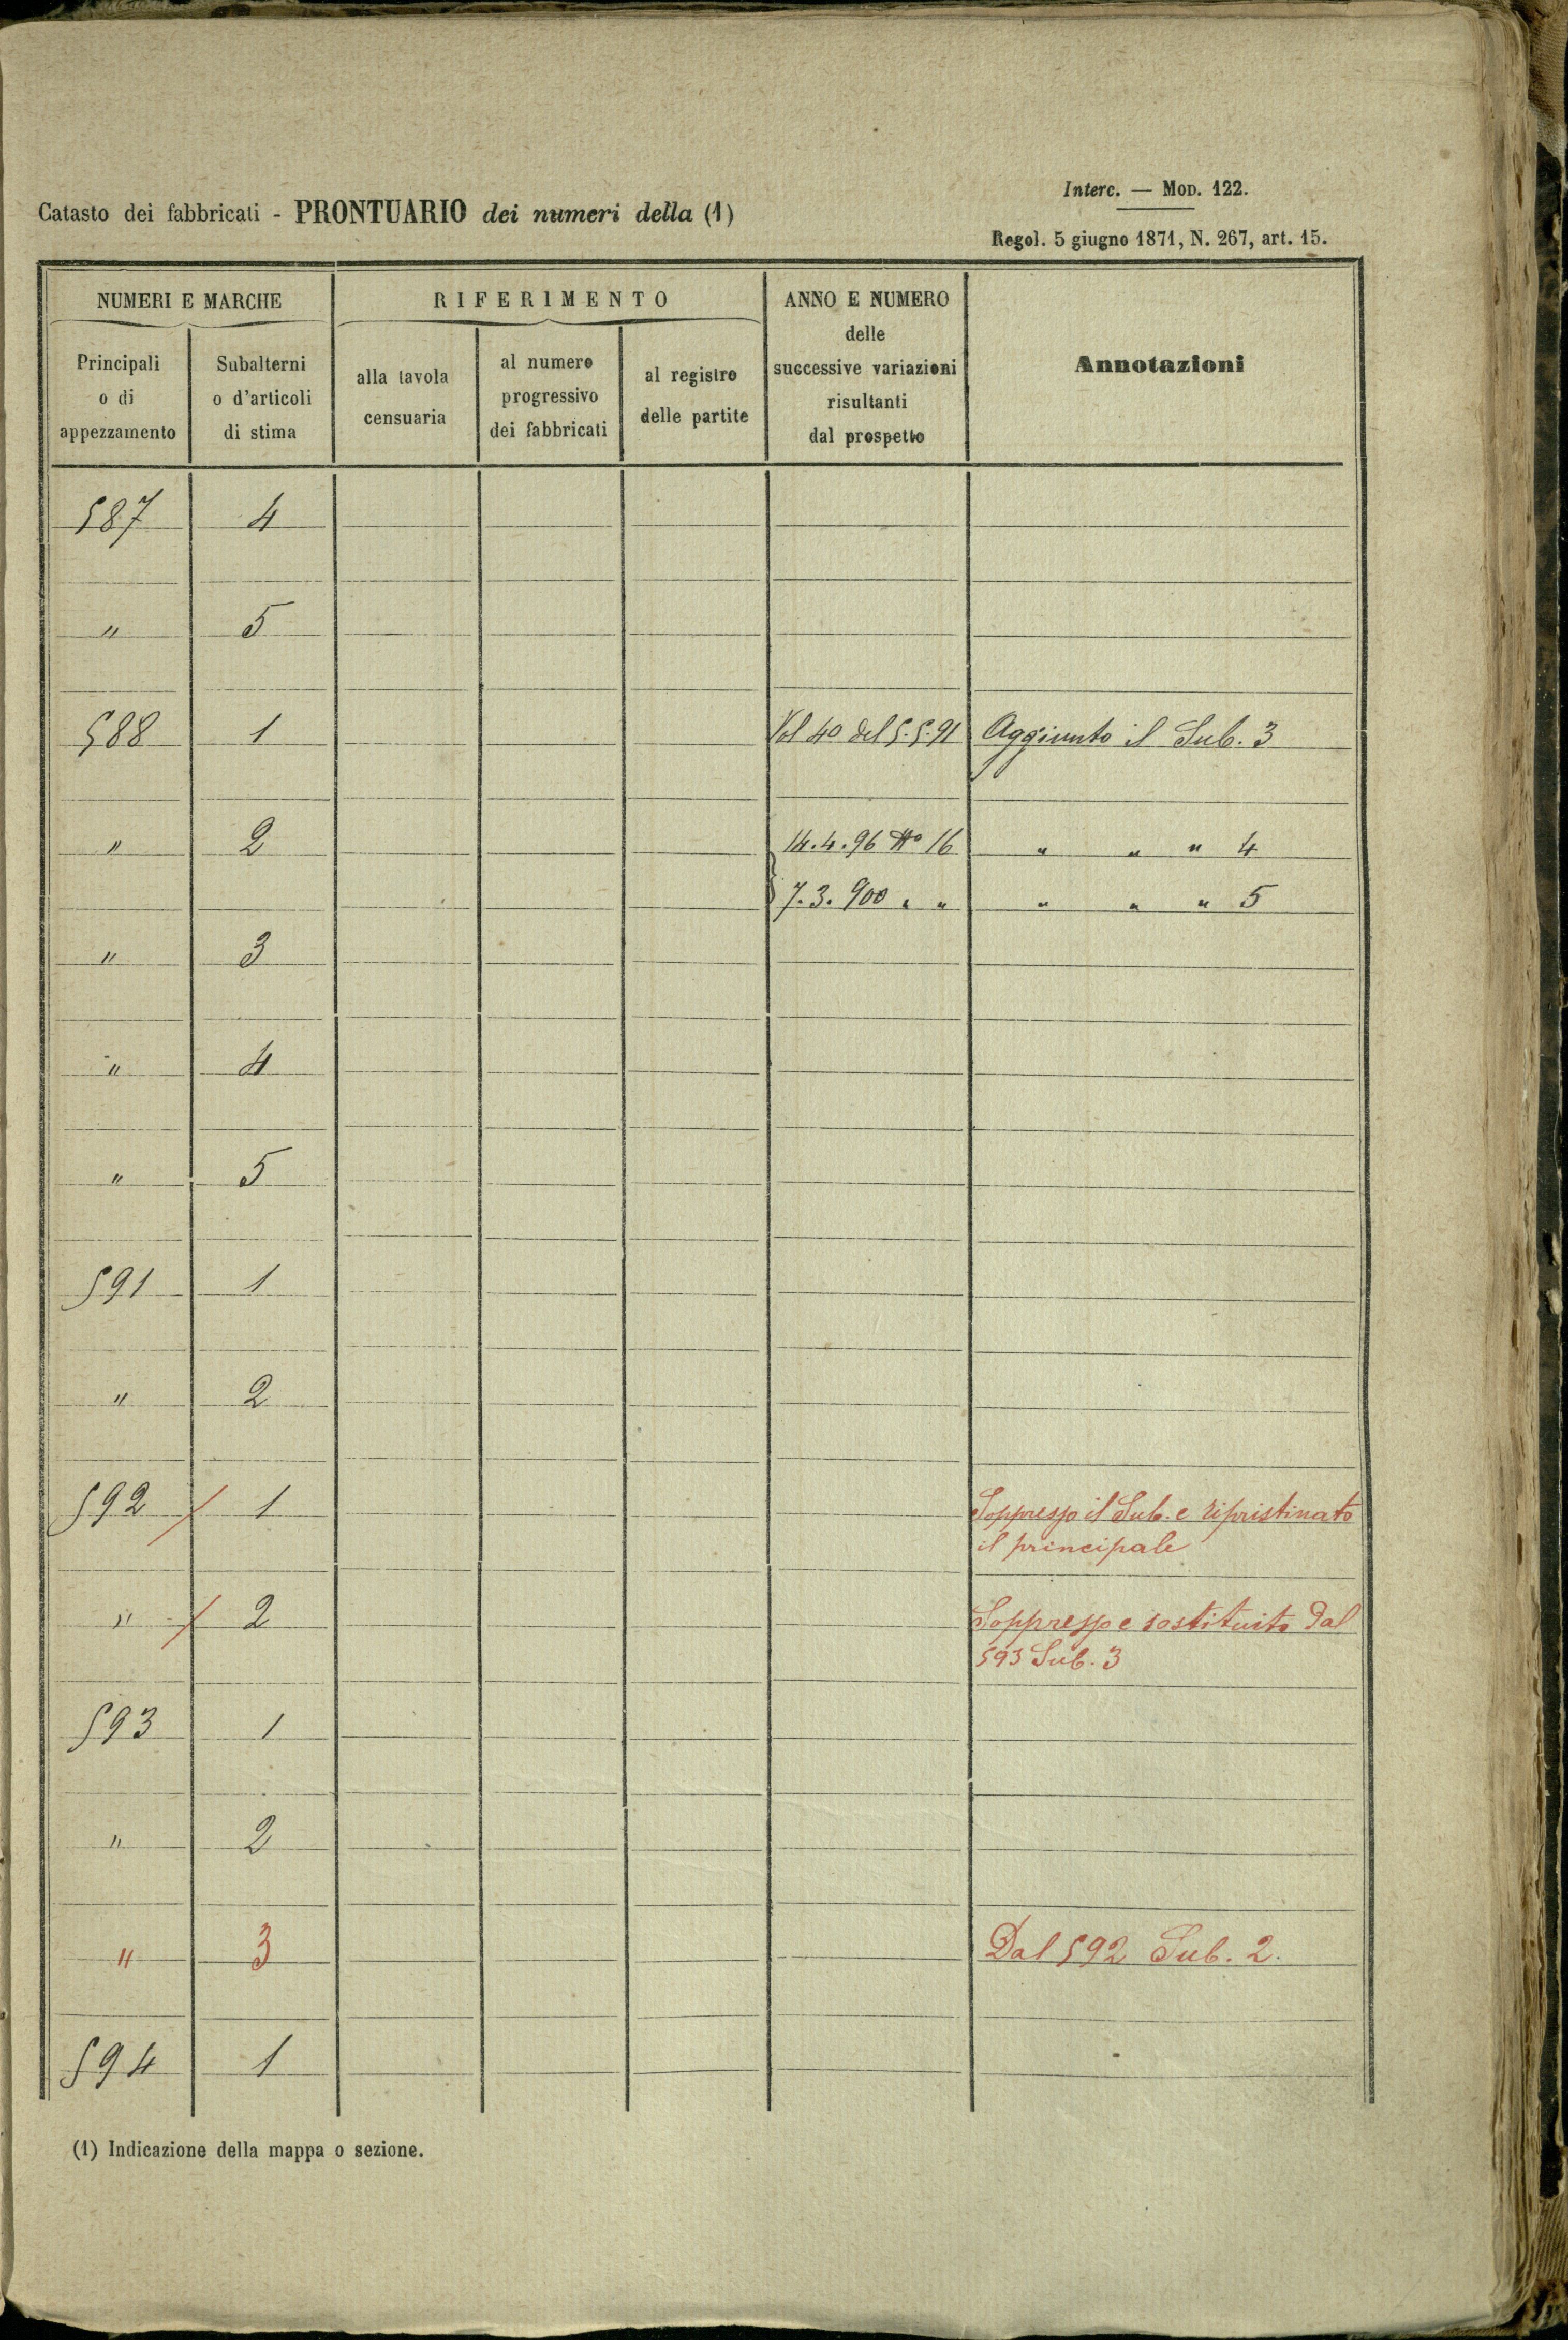 Interc. — Mod. 122.
Catasto dei fabbricati - PRONTUARIO dei numeri della (1)
Regol. 5 giugno 1871, N. 267, art. 15.
NUMERI E MARCHE
Principali o di appezzamento
Subalterni o d'articoli di stima
RIFERIMENTO
alla tavola censuaria
al numero progressivo dei fabbricati
al registro delle partite
ANNO E NUMERO delle successive variazioni risultanti dal prospetto
Annotazioni
587 4
" 5
588 1 Vol 40 del 5.5.91 Aggiunto il Sub. 3
" 2 14.4.96 No 16 " " " 4
7.3.900 " " " " " 5
" 3
" 4
" 5
591 1
" 2
592 / 1 Soppresso il Sub. e ripristinato
il principale
" / 2 Soppresso e sostituito dal
593 Sub. 3
593 1
" 2
" 3 Dal 592 Sub. 2.
594 1
(1) Indicazione della mappa o sezione.